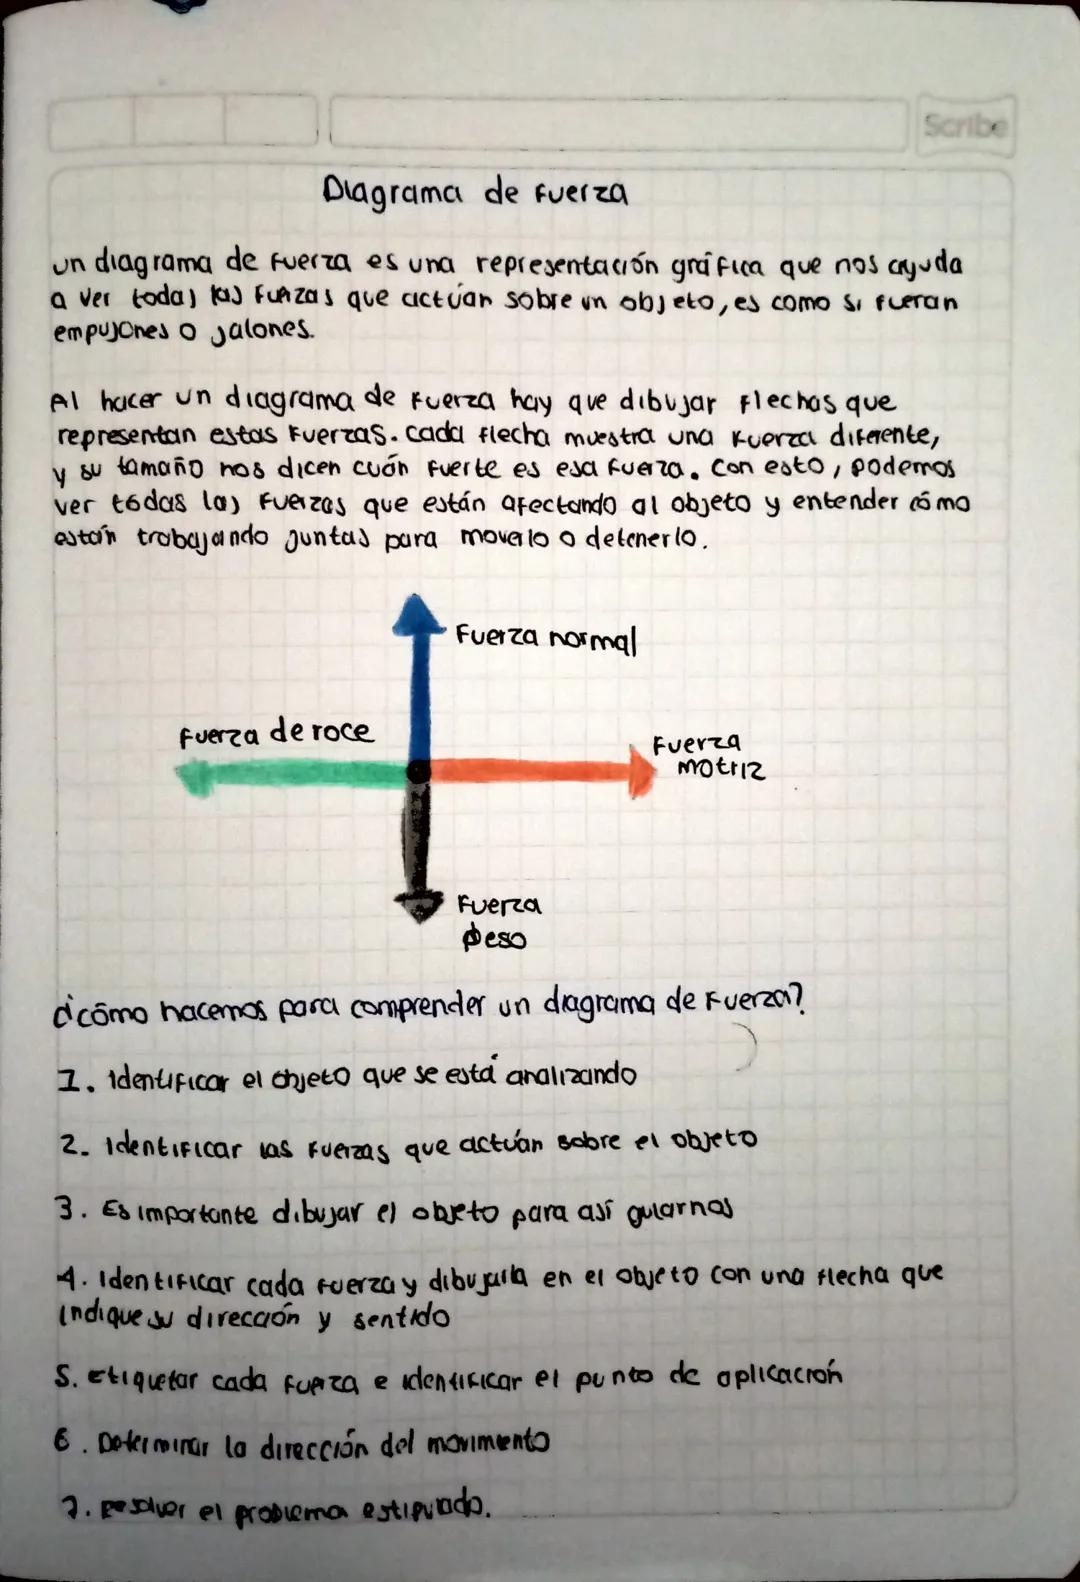 Scribe
Diagrama de fuerza
un diagrama de fuerza es una representación gráfica que nos ayuda
a ver todas las fuerzas que actúan sobre un objeto, es como si fueran
empujones o jalones.
Al hacer un diagrama de fuerza hay que dibujar flechas que
representan estas fuerzas. Cada flecha muestra una fuerza diferente,
y su tamaño nos dicen cuán fuerte es esa fuerza. Con esto, podemos
ver todas las fuerzas que están afectando al objeto y entender cómo
están trabajando juntas para moverlo o detenerlo.
Fuerza normal
Fuerza de roce
Fuerza
motriz
Fuerza
peso
¿cómo hacemos para comprender un diagrama de fuerza?
1. Identificar el objeto que se está analizando
2. Identificar las fuerzas que actúan sobre el objeto
3. Es importante dibujar el objeto para así guiarnos
4. Identificar cada fuerza y dibujarla en el objeto con una flecha que
indique su dirección y sentido
5. Etiquetar cada fuerza e identificar el punto de aplicación
6. Determinar la dirección del movimiento
7. Resolver el problema estipulado.